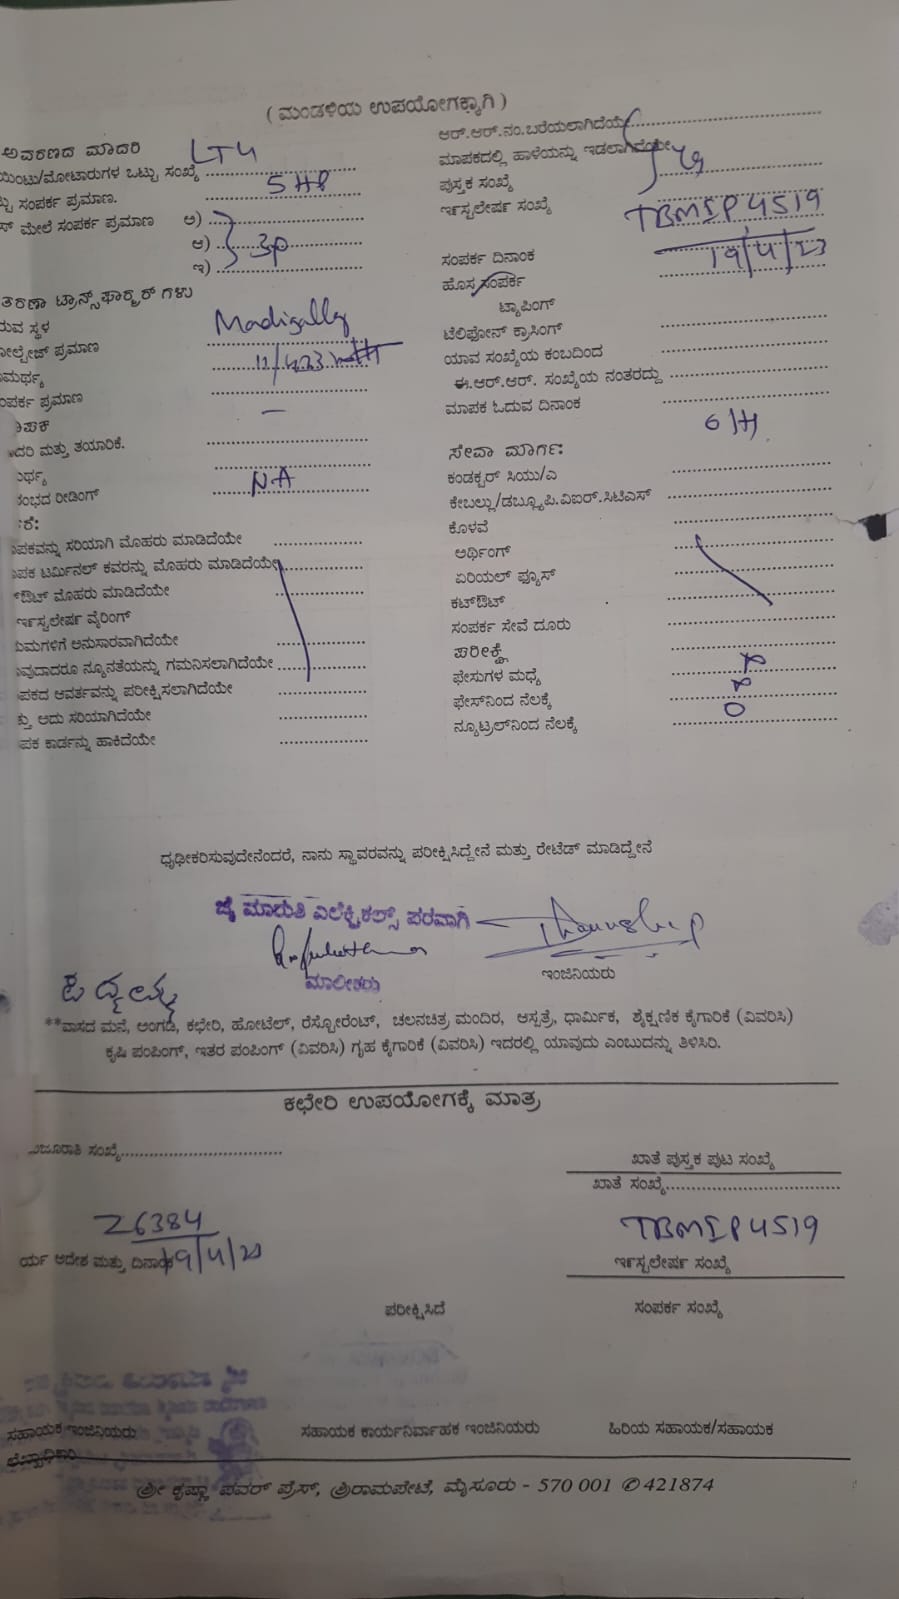 ( ಮಂಡಳಿಯ ಉಪಯೋಗಕ್ಕಾಗಿ )
ಅವರಣದ ಮಾದರಿ LT4
ಯಿಂಟು/ಮೋಟಾರುಗಳ ಒಟ್ಟು ಸಂಖ್ಯೆ
ಟ್ಟು ಸಂಪರ್ಕ ಪ್ರಮಾಣ. 5 HP
ಸ್ ಮೇಲೆ ಸಂಪರ್ಕ ಪ್ರಮಾಣ ಅ)
ಆ) 3p
ಇ)
ತರಣಾ ಟ್ರಾನ್ಸ್‌ಫಾರ್ಮರ್ ಗಳು
ರುವ ಸ್ಥಳ Madigally
ೋಲ್ಟೇಜ್ ಪ್ರಮಾಣ 11/423
ಾಮರ್ಥ್ಯ
ಂಪರ್ಕ ಪ್ರಮಾಣ –
ಾಪಕ
ಾದರಿ ಮತ್ತು ತಯಾರಿಕೆ.
ರ್ಥ್ಯ
ರಂಭದ ರೀಡಿಂಗ್ NA
ಕೆ:
ಾಪಕವನ್ನು ಸರಿಯಾಗಿ ಮೊಹರು ಮಾಡಿದೆಯೇ
ಾಪಕ ಟರ್ಮಿನಲ್ ಕವರನ್ನು ಮೊಹರು ಮಾಡಿದೆಯೇ
್‌ಔಟ್ ಮೊಹರು ಮಾಡಿದೆಯೇ
ಇನ್‌ಸ್ಟಲೇಷನ್ ವೈರಿಂಗ್
ಯಮಗಳಿಗೆ ಅನುಸಾರವಾಗಿದೆಯೇ
ಾವುದಾದರೂ ನ್ಯೂನತೆಯನ್ನು ಗಮನಿಸಲಾಗಿದೆಯೇ
ಪಕದ ಆವರ್ತವನ್ನು ಪರೀಕ್ಷಿಸಲಾಗಿದೆಯೇ
ತ್ತು ಅದು ಸರಿಯಾಗಿದೆಯೇ
ಪಕ ಕಾರ್ಡನ್ನು ಹಾಕಿದೆಯೇ
ಆರ್.ಆರ್.ನಂ.ಬರೆಯಲಾಗಿದೆಯೇ
ಮಾಪಕದಲ್ಲಿ ಹಾಳೆಯನ್ನು ಇಡಲಾಗಿದೆಯೇ
ಪುಸ್ತಕ ಸಂಖ್ಯೆ
ಇನ್‌ಸ್ಟಲೇಷನ್ ಸಂಖ್ಯೆ TBMIP4519
ಸಂಪರ್ಕ ದಿನಾಂಕ 19/4/23
ಹೊಸ ಸಂಪರ್ಕ
ಟ್ಯಾಪಿಂಗ್
ಟೆಲಿಫೋನ್ ಕ್ರಾಸಿಂಗ್
ಯಾವ ಸಂಖ್ಯೆಯ ಕಂಬದಿಂದ
ಈ.ಆರ್.ಆರ್. ಸಂಖ್ಯೆಯ ನಂತರದ್ದು
ಮಾಪಕ ಓದುವ ದಿನಾಂಕ
ಸೇವಾ ಮಾರ್ಗ:
ಕಂಡಕ್ಟರ್ ಸಿಯು/ಎ
ಕೇಬಲ್ಲು/ಡಬ್ಲ್ಯೂಪಿ.ವಿಐಆರ್.ಸಿಟಿಎಸ್
ಕೊಳವೆ
ಅರ್ಥಿಂಗ್
ಏರಿಯಲ್ ಫ್ಯೂಸ್
ಕಟ್‌ಔಟ್
ಸಂಪರ್ಕ ಸೇವೆ ದೂರು
ಪರೀಕ್ಷೆ
ಫೇಸುಗಳ ಮಧ್ಯೆ
ಫೇಸ್‌ನಿಂದ ನೆಲಕ್ಕೆ
ನ್ಯೂಟ್ರಲ್‌ನಿಂದ ನೆಲಕ್ಕೆ 0
ಧೃಢೀಕರಿಸುವುದೇನೆಂದರೆ, ನಾನು ಸ್ಥಾವರವನ್ನು ಪರೀಕ್ಷಿಸಿದ್ದೇನೆ ಮತ್ತು ರೇಟೆಡ್ ಮಾಡಿದ್ದೇನೆ
ಜೈ ಮಾರುತಿ ಎಲೆಕ್ಟ್ರಿಕಲ್ಸ್ ಪರವಾಗಿ
ಮಾಲೀಕರು
ಇಂಜಿನಿಯರು
**ವಾಸದ ಮನೆ, ಅಂಗಡಿ, ಕಛೇರಿ, ಹೋಟೆಲ್, ರೆಸ್ಟೋರೆಂಟ್, ಚಲನಚಿತ್ರ ಮಂದಿರ, ಆಸ್ಪತ್ರೆ, ಧಾರ್ಮಿಕ, ಶೈಕ್ಷಣಿಕ ಕೈಗಾರಿಕೆ (ವಿವರಿಸಿ)
ಕೃಷಿ ಪಂಪಿಂಗ್, ಇತರ ಪಂಪಿಂಗ್ (ವಿವರಿಸಿ) ಗೃಹ ಕೈಗಾರಿಕೆ (ವಿವರಿಸಿ) ಇದರಲ್ಲಿ ಯಾವುದು ಎಂಬುದನ್ನು ತಿಳಿಸಿರಿ.
ಕಛೇರಿ ಉಪಯೋಗಕ್ಕೆ ಮಾತ್ರ
ಮಂಜೂರಾತಿ ಸಂಖ್ಯೆ
ಖಾತೆ ಪುಸ್ತಕ ಪುಟ ಸಂಖ್ಯೆ
ಖಾತೆ ಸಂಖ್ಯೆ
26384
TBMIP4519
ರ್ಯ ಆದೇಶ ಮತ್ತು ದಿನಾಂಕ 19/4/23
ಇನ್‌ಸ್ಟಲೇಷನ್ ಸಂಖ್ಯೆ
ಪರೀಕ್ಷಿಸಿದೆ
ಸಂಪರ್ಕ ಸಂಖ್ಯೆ
ಸಹಾಯಕ ಇಂಜಿನಿಯರು
ಸಹಾಯಕ ಕಾರ್ಯನಿರ್ವಾಹಕ ಇಂಜಿನಿಯರು
ಹಿರಿಯ ಸಹಾಯಕ/ಸಹಾಯಕ
ಶ್ರೀ ಕೃಷ್ಣಾ ಪವರ್ ಪ್ರೆಸ್, ಶ್ರೀರಾಮಪೇಟೆ, ಮೈಸೂರು - 570 001 ✆421874